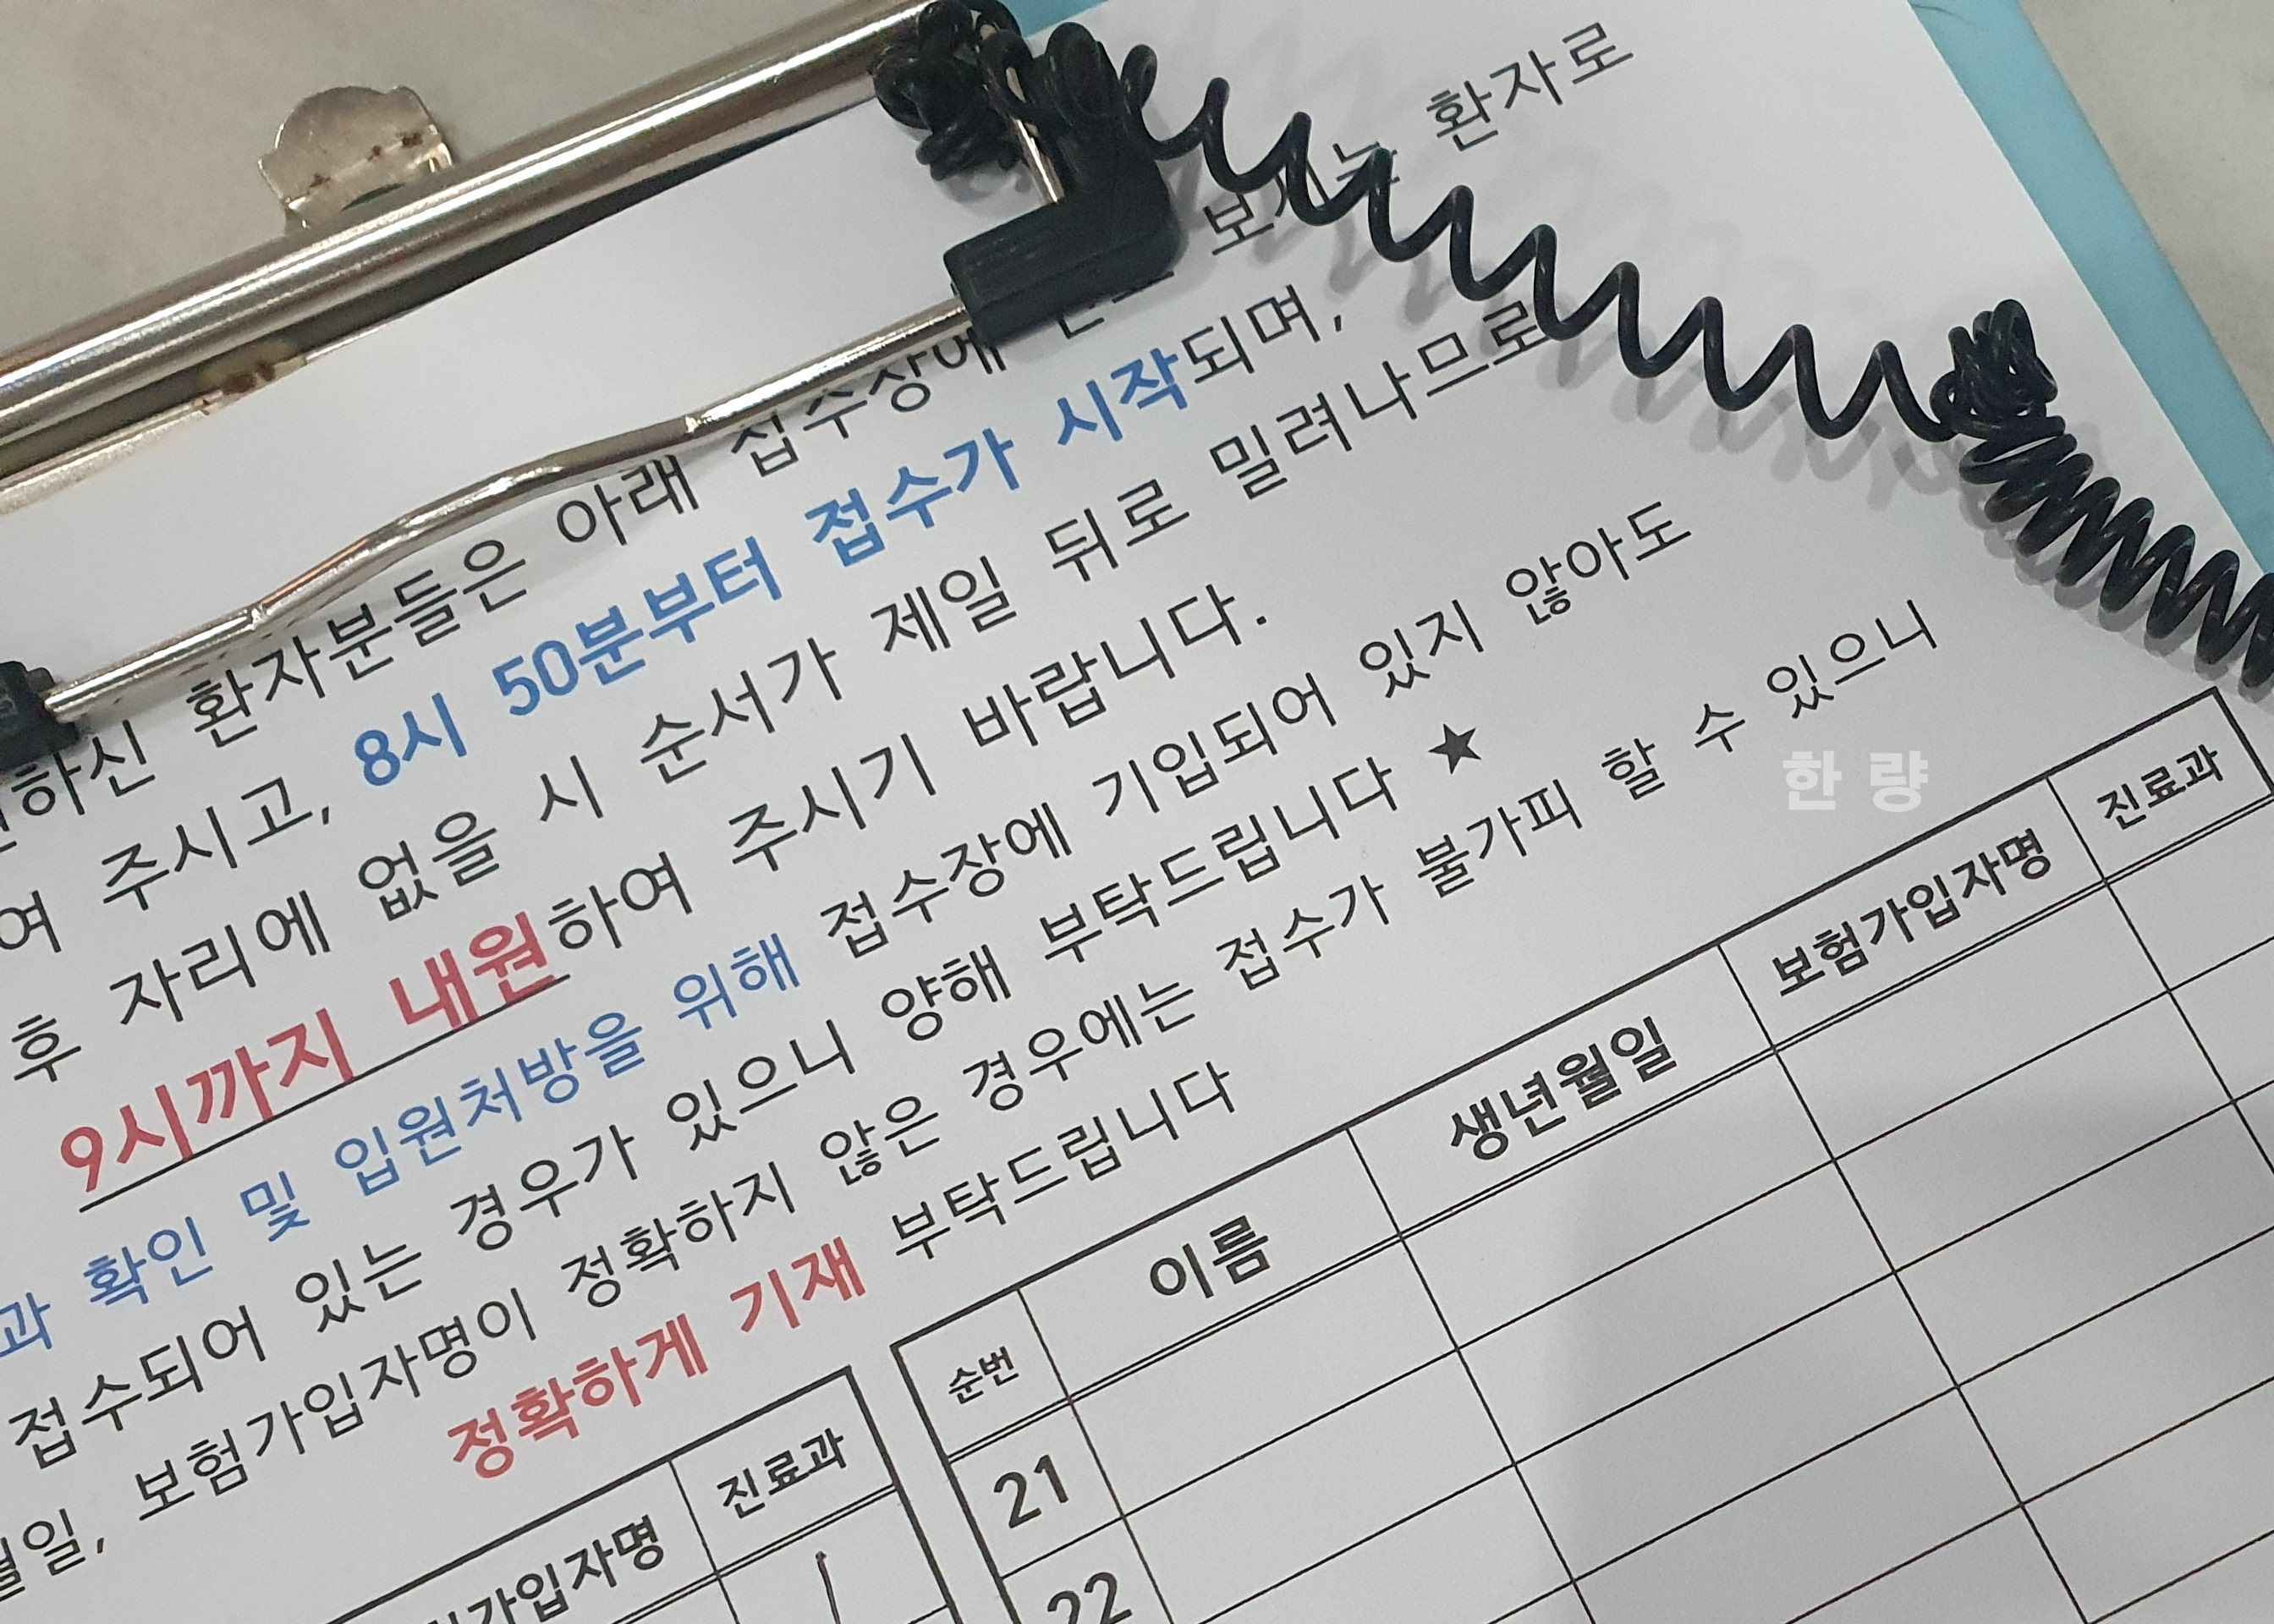 환자로
하신 환자분들은 아래 접수장에
여 주시고, 8시 50분부터 접수가 시작되며,
후 자리에 없을 시 순서가 제일 뒤로 밀려나므로
9시까지 내원하여 주시기 바랍니다.
과 확인 및 입원처방을 위해 접수장에 기입되어 있지 않아도
접수되어 있는 경우가 있으니 양해 부탁드립니다 ★
월일, 보험가입자명이 정확하지 않은 경우에는 접수가 불가피 할 수 있으니
정확하게 기재 부탁드립니다
한량
가입자명 진료과
순번 이름 생년월일 보험가입자명 진료과
21
22